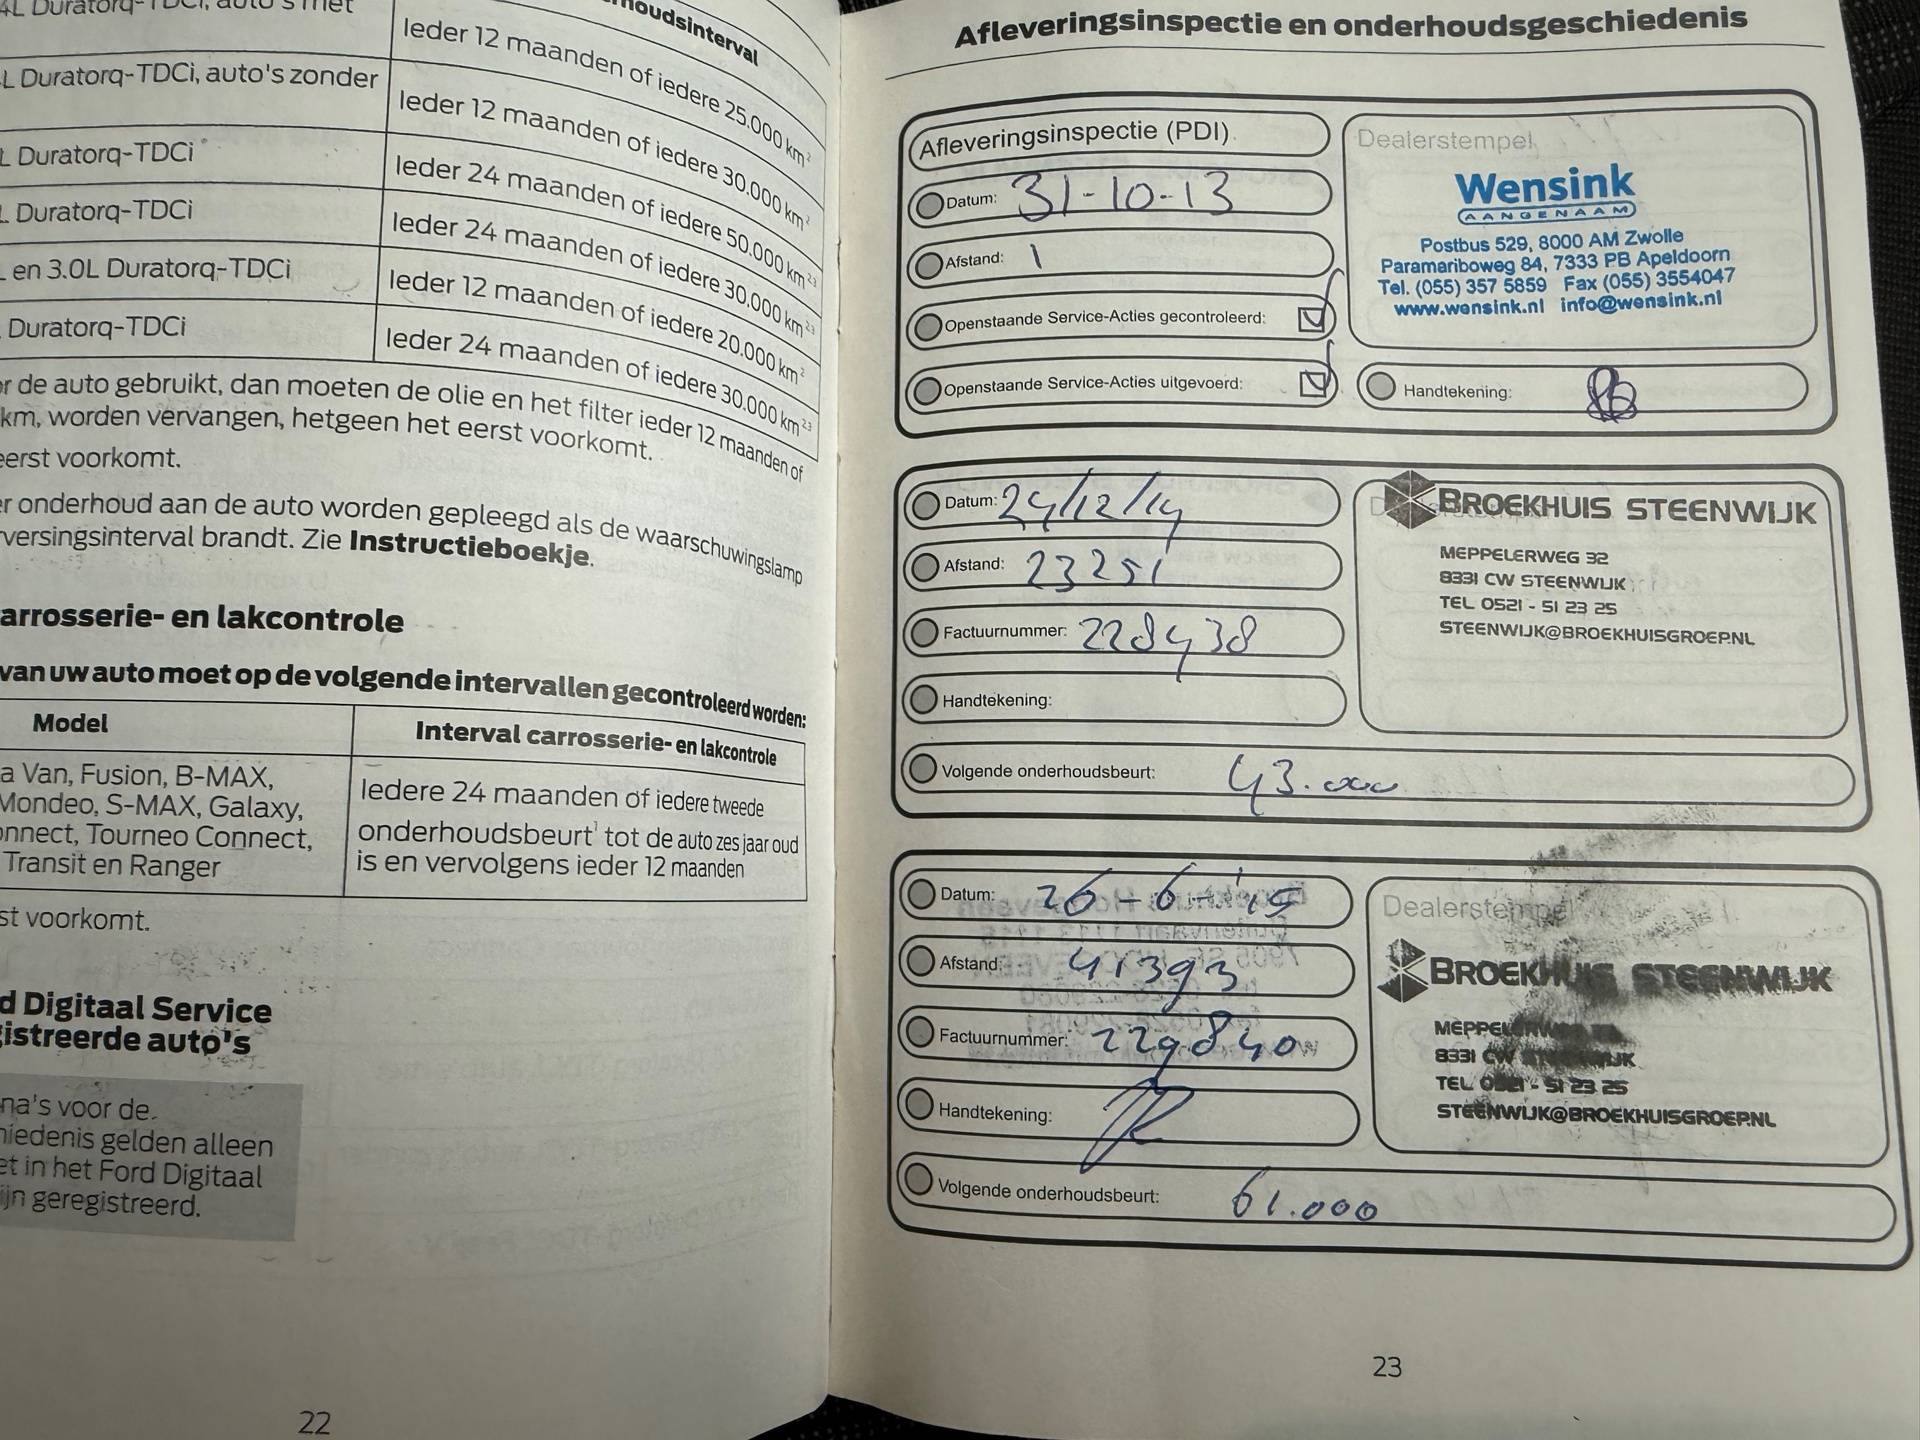 4L Duratorq-TDCi, auto's met
Ieder 12 maanden of iedere 25.000 km²
L Duratorq-TDCi, auto's zonder
Ieder 12 maanden of iedere 30.000 km²
L Duratorq-TDCi
Ieder 24 maanden of iedere 50.000 km²³
L Duratorq-TDCi
Ieder 24 maanden of iedere 30.000 km²³
L en 3.0L Duratorq-TDCi
Ieder 12 maanden of iedere 20.000 km²
Duratorq-TDCi
Ieder 24 maanden of iedere 30.000 km²³
de auto gebruikt, dan moeten de olie en het filter ieder 12 maanden of
km, worden vervangen, hetgeen het eerst voorkomt.
eerst voorkomt.
er onderhoud aan de auto worden gepleegd als de waarschuwingslamp
versingsinterval brandt. Zie Instructieboekje.
arrosserie- en lakcontrole
van uw auto moet op de volgende intervallen gecontroleerd worden:
Model
Interval carrosserie- en lakcontrole
a Van, Fusion, B-MAX,
Mondeo, S-MAX, Galaxy,
onnect, Tourneo Connect,
Transit en Ranger
Iedere 24 maanden of iedere tweede
onderhoudsbeurt¹ tot de auto zes jaar oud
is en vervolgens ieder 12 maanden
st voorkomt.
d Digitaal Service
gistreerde auto's
na's voor de
hiedenis gelden alleen
et in het Ford Digitaal
ijn geregistreerd.
22
Afleveringsinspectie en onderhoudsgeschiedenis
Afleveringsinspectie (PDI)
Datum: 31-10-13
Afstand: 1
Openstaande Service-Acties gecontroleerd:
Openstaande Service-Acties uitgevoerd:
Dealerstempel
Wensink
AANGENAAM
Postbus 529, 8000 AM Zwolle
Paramariboweg 84, 7333 PB Apeldoorn
Tel. (055) 357 5859 Fax (055) 3554047
www.wensink.nl info@wensink.nl
Handtekening:
Datum: 24/12/14
Afstand: 23251
Factuurnummer: 228438
Handtekening:
Volgende onderhoudsbeurt: 43.000
BROEKHUIS STEENWIJK
MEPPELERWEG 32
8331 CW STEENWIJK
TEL 0521 - 51 23 25
STEENWIJK@BROEKHUISGROEP.NL
Datum: 26-6-'15
Afstand: 41393
Factuurnummer: 229840
Handtekening:
Volgende onderhoudsbeurt: 61.000
Dealerstempel
BROEKHUIS STEENWIJK
8331 CW STEENWIJK
TEL 0521 - 51 23 25
STEENWIJK@BROEKHUISGROEP.NL
23